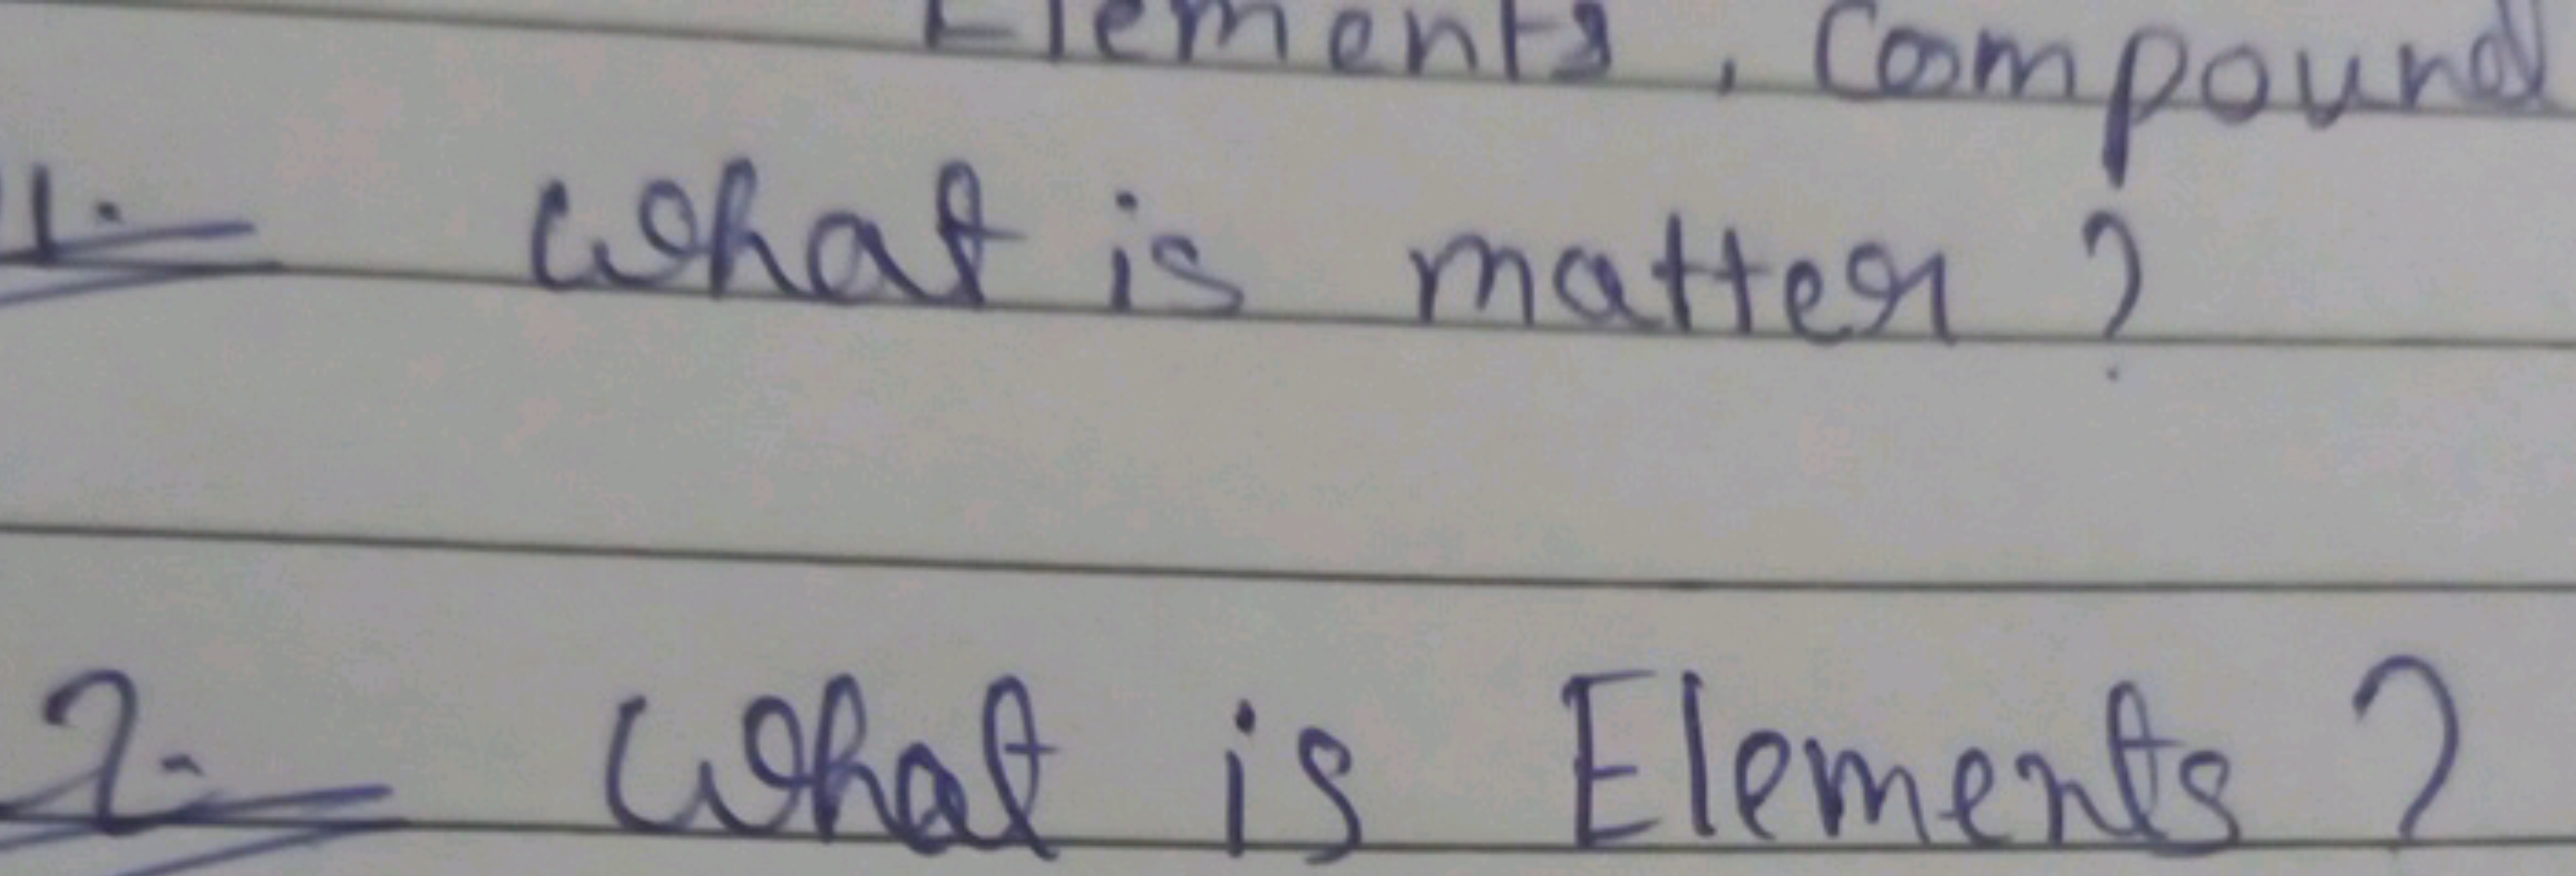 Elements, Compound
1. What is matter?
2. What is Elements?